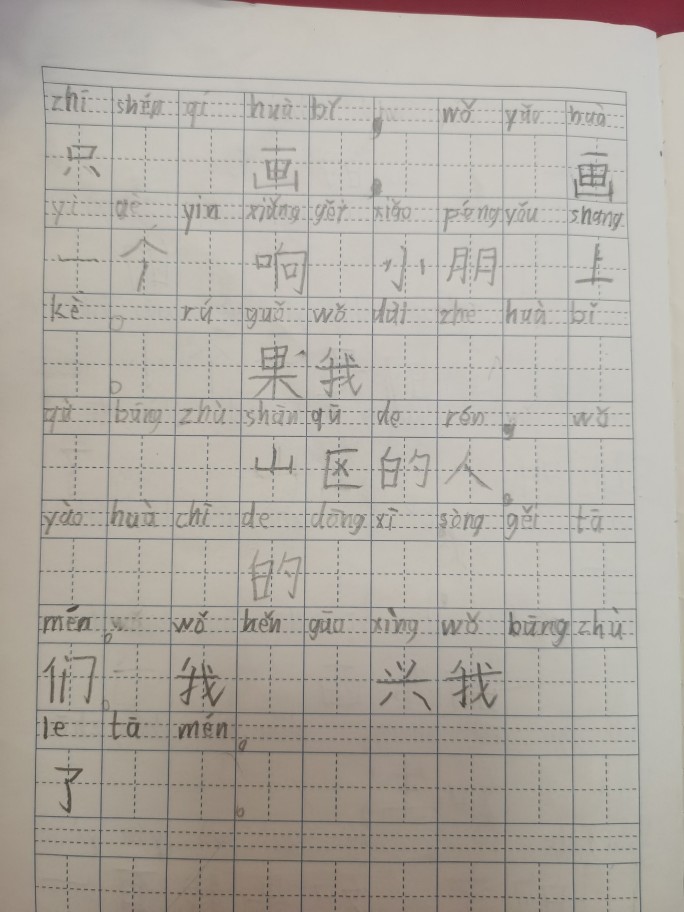 zhī shén qí huà bǐ , wǒ yǎo huà
只 画 , 画
yì gè yin xiǎng gěi xiǎo péng yǒu shang
一 个 响 小 朋 上
kè 。 rú guǒ wǒ dài zhe huà bǐ
。 果 我
qù bāng zhù shān qū de rén , wǒ
山 区 的 人 。
yào huà chī de dōng xī sòng gěi tā
的
mén 。 wǒ hěn gāo xìng wǒ bāng zhù
们 。 我 兴 我
le tā mén 。
了 。